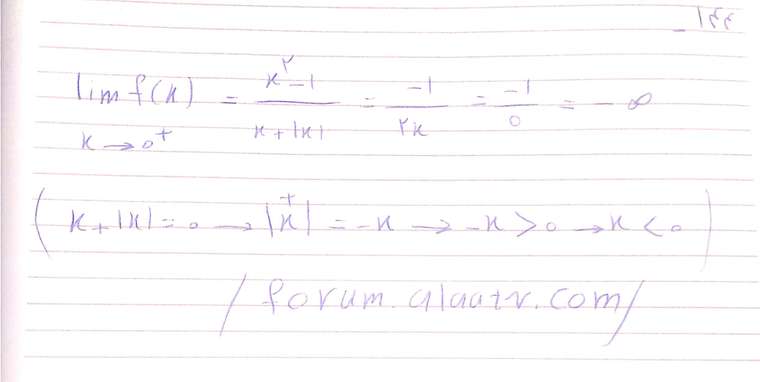 _ ۱۴۴
lim f(x) = x^۲-1 / x+|x| = -1 / ۲x = -1 / 0 = -∞
x→0+
( x+|x|=0 → |x|^+ = -x → -x>0 → x<0 )
/ forum.alaatv.com/